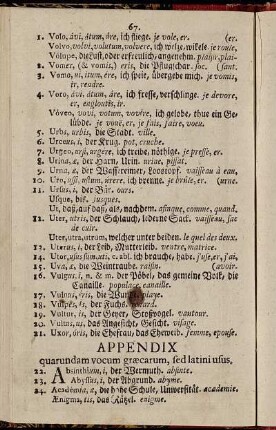 67.
1. Volo, ávi, átum, áre, ich fliege. je vole, er. (er.
Volvo, volvi, volutum, volvere, ich welze, wikele. je roule,
Volupe, dieLust, oder erfreulich, angenehm. plaisir, plai-
2. Vomer, (& vomis,) eris, die Pflugschar. soc. (sant.
3. Vomo, ui, itum, ére, ich speie, übergebe mich. je vomis,
ir, rendre.
4. Voro, ávi, átum, áre, ich fresse, verschlinge. je devore,
er, engloutis, ir.
Vóveo, vovi, votum, vovére, ich gelobe, thue ein Ge-
lübde. je voue, er, je fais, faire, voeu.
5. Urbs, urbis, die Stadt. ville.
6. Urceus, i, der Krug. pot, cruche.
7. Urgeo, ursi, urgere, ich treibe, nöthige. je presse, er.
8. Urina, æ, der Harn, Urin. uriae, pissat.
9. Urna, æ, der Wassreimer, Loostopf. vaisseau à eau,
10. Uro, ussi, ustum, urere, ich brenne. je brûle, er. (urne.
11. Ursus, i, der Bär. ours.
Usque, bis. jusques.
Ut, daß, auf daß, als, nachdem. afinque, comme, quand.
12. Uter, utris, der Schlauch, lederne Sack. vaisseau, sac
de cuir.
Uter, utra, utrum, welcher unter beiden. le quel des deux.
13. Uterus, i, der Leib, Mutterleib. ventre, matrice.
14. Utor, usus sum, uti, c. abl. ich brauche, habe. j'use, er, j'ai,
15. Uva, æ, die Weintraube. raisin. (avoir.
16. Vulgus, i, n. & m. der Pöbel, das gemeine Volk, die
Canaille. populace, canaille.
17. Vulnus, eris, die Wunde. playe.
18. Vulpes, is, der Fuchs. renard.
19. Vultur, is, der Geyer, Stoßvogel. vautour.
20. Vultus, us, das Angesicht, Gesicht. visage.
21. Uxor, óris, die Ehefrau, das Eheweib. femme, epouse.
APPENDIX
quarundam vocum græcarum, sed latini usus,
22. Absinthium, i, der Wermuth. absinte.
23. Abyssus, i, der Abgrund. abyme.
24. Académia, æ, die hohe Schule, Universität. académie.
Ænigma, tis, das Rätzel. enigme.